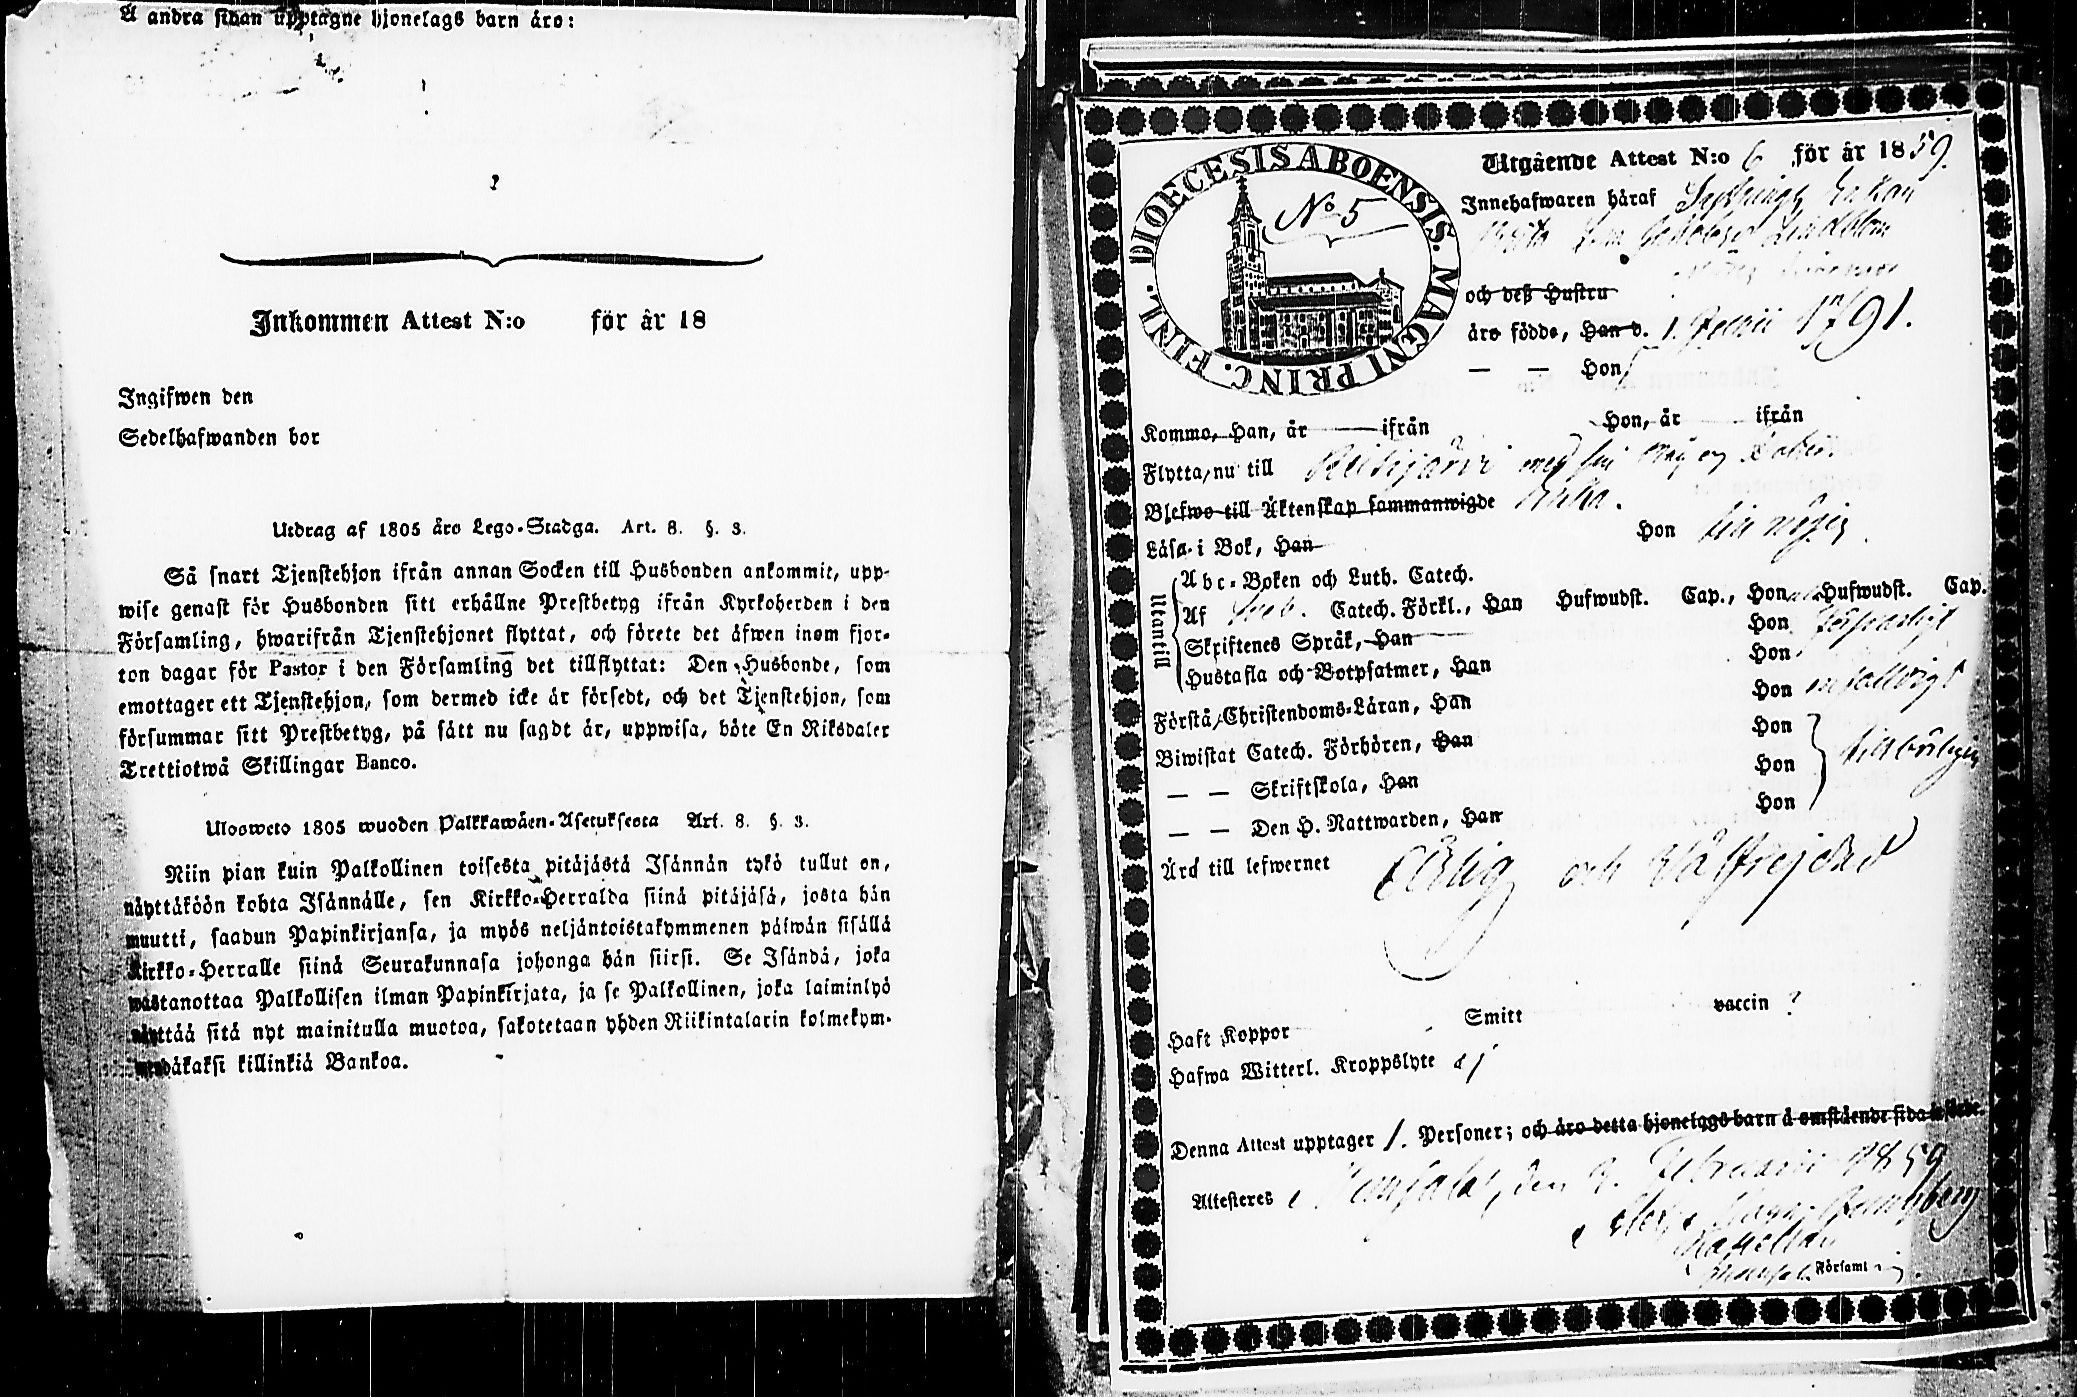 Å andra sidan upptagne hjonelags barn äro:
Inkommen Attest N:o för år 18
Ingifwen den
Sedelhafwanden bor
Utdrag af 1805 års Lego-Stadga. Art. 8. §. 3.
Så snart Tjenstehjon ifrån annan Socken till Husbonden ankommit, upp-
wise genast för Husbonden sitt erhållne Prestbetyg ifrån Kyrkoherden i den
Församling, hwarifrån Tjenstehjonet flyttat, och förete det äfwen inom fjor-
ton dagar för Pastor i den Församling det tillflyttat: Den Husbonde, som
emottager ett Tjenstehjon, som dermed icke är försedt, och det Tjenstehjon, som
försummar sitt Prestbetyg, på sätt nu sagdt är, uppwisa, böte En Riksdaler
Trettiotwå Skillingar Banco.
Ulosweto 1805 wuoden Palkkawäen-Asetuksesta Art. 8. §. 3.
Niin pian kuin Palkollinen toisesta pitäjästä Isännän tykö tullut on,
näyttäköön kohta Isännälle, sen Kirkko-Herralda siinä pitäjäsä, josta hän
muutti, saadun Papinkirjansa, ja myös neljäntoistakymmenen päiwän sisällä
Kirkko-Herralle siinä Seurakunnasa johonga hän siirsi. Se Isändä, joka
wastanottaa Palkollisen ilman Papinkirjata, ja se Palkollinen, joka laiminlyö
näyttää sitä nyt mainitulla muotoa, sakotetaan yhden Riikintalarin kolmekym-
mendäkaksi killinkiä Bankoa.
DIOECESIS ABOENSIS. MAGNI PRINC. FINL.
No 5
Utgående Attest N:o 6 för år 1859.
Innehafwaren häraf Enkan
Lindblom
och deß Hustru
äro födde, Han d. 1. Junii 1791.
— — Hon
Kommo, Han, år ifrån Hon, år ifrån
Flytta nu till Reisijärvi med sin Måg och Dotter
Blefwo till Äktenskap sammanwigde
Läsa i Bok, Han Hon till nöjes
Utantill
Abc-Boken och Luth. Catech.
Af Sveb. Catech. Förkl., Han Hufwudst. Cap., Hon Hufwudst. Cap.
Skriftenes Språk, Han Hon försvarligt
Hustafla och Botpsalmer, Han Hon
Förstå Christendoms-Läran, Han Hon enfalldigt
Biwistat Catech. Förhören, Han Hon
— — Skriftskola, Han Hon tillbörligen
— — Den H. Nattwarden, Han Hon
Äro till lefwernet Ärlig och Välfrejdad
Haft Koppor Smitt vaccin ?
Hafwa Witterl. Kroppslyte ej
Denna Attest upptager 1. Personer; och äro detta hjonelags barn å omstående sida införde.
Attesteras i den 9. Februarii 1859
Kapellan
Församling.